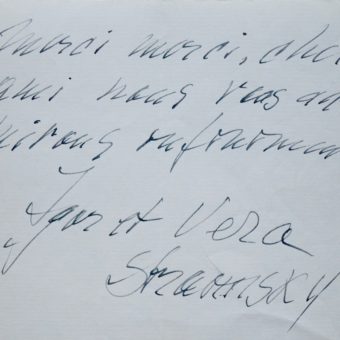 Merci merci, cher
ami nous vous ad
mirons
Igor et Vera
Stravinsky